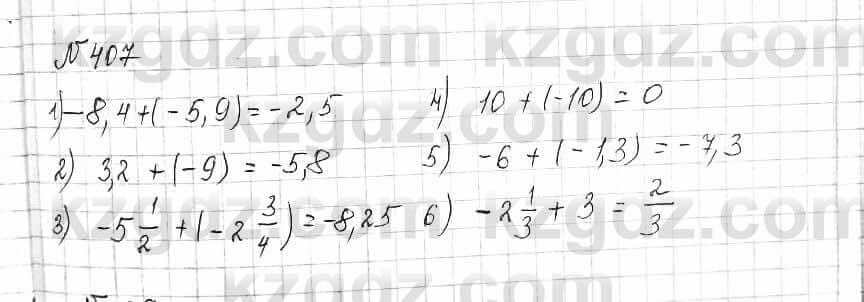 № 407
1) -8,4 + (-5,9) = -2,5
2) 3,2 + (-9) = -5,8
3) -5 1/2 + (-2 3/4) = -8,25
4) 10 + (-10) = 0
5) -6 + (-1,3) = -7,3
6) -2 1/3 + 3 = 2/3
kzgdz.com